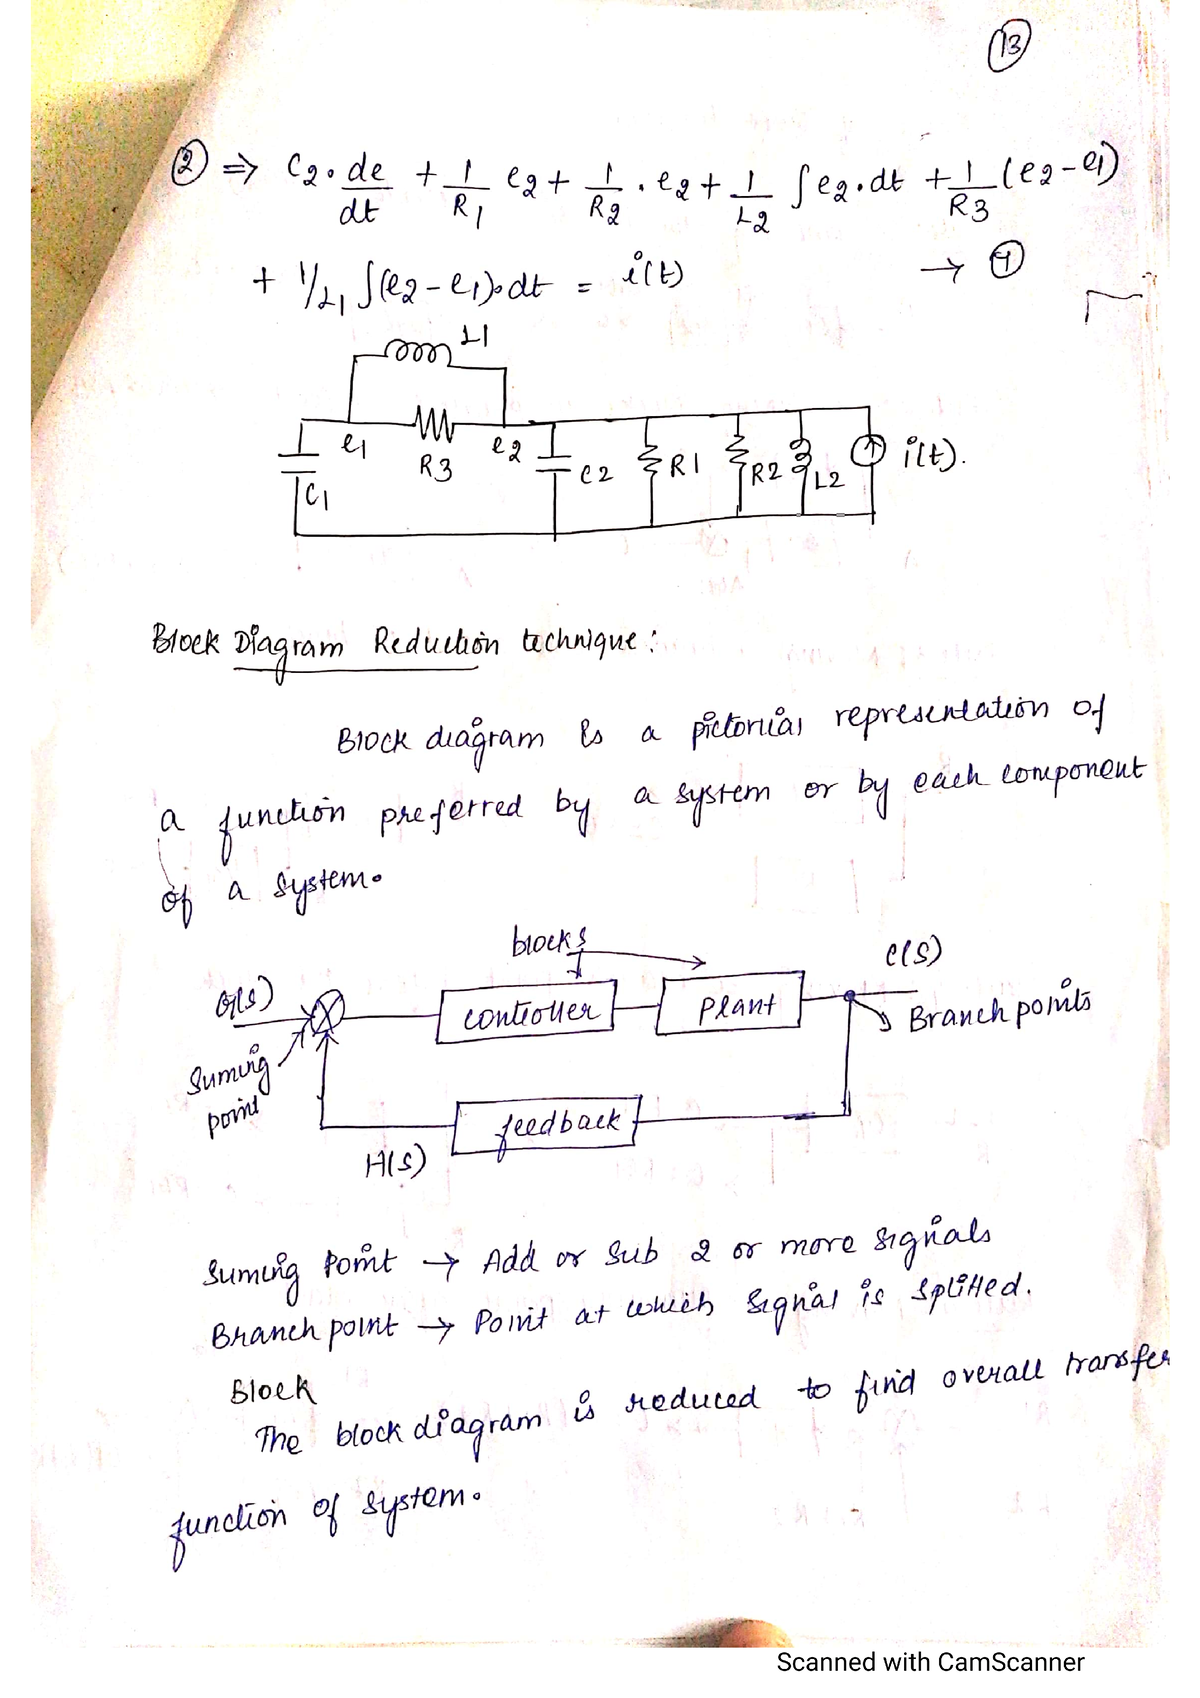 13
② ⇒ C2 · de/dt + 1/R1 e2 + 1/R2 · e2 + 1/L2 ∫ e2 · dt + 1/R3 (e2 - e1)
+ 1/L1 ∫(e2 - e1) · dt = i(t) → ④
L1
e1 R3 e2
C1 C2 R1 R2 L2 i(t).
Block Diagram Reduction technique :
Block diagram is a pictorial representation of
a function preferred by a system or by each component
of a system.
blocks
G(s) controller plant C(S)
Branch points
Suming
point
feedback
H(S)
Suming Point → Add or Sub 2 or more signals
Branch point → Point at which signal is splitted.
Block
The block diagram is reduced to find overall transfer
function of system.
Scanned with CamScanner